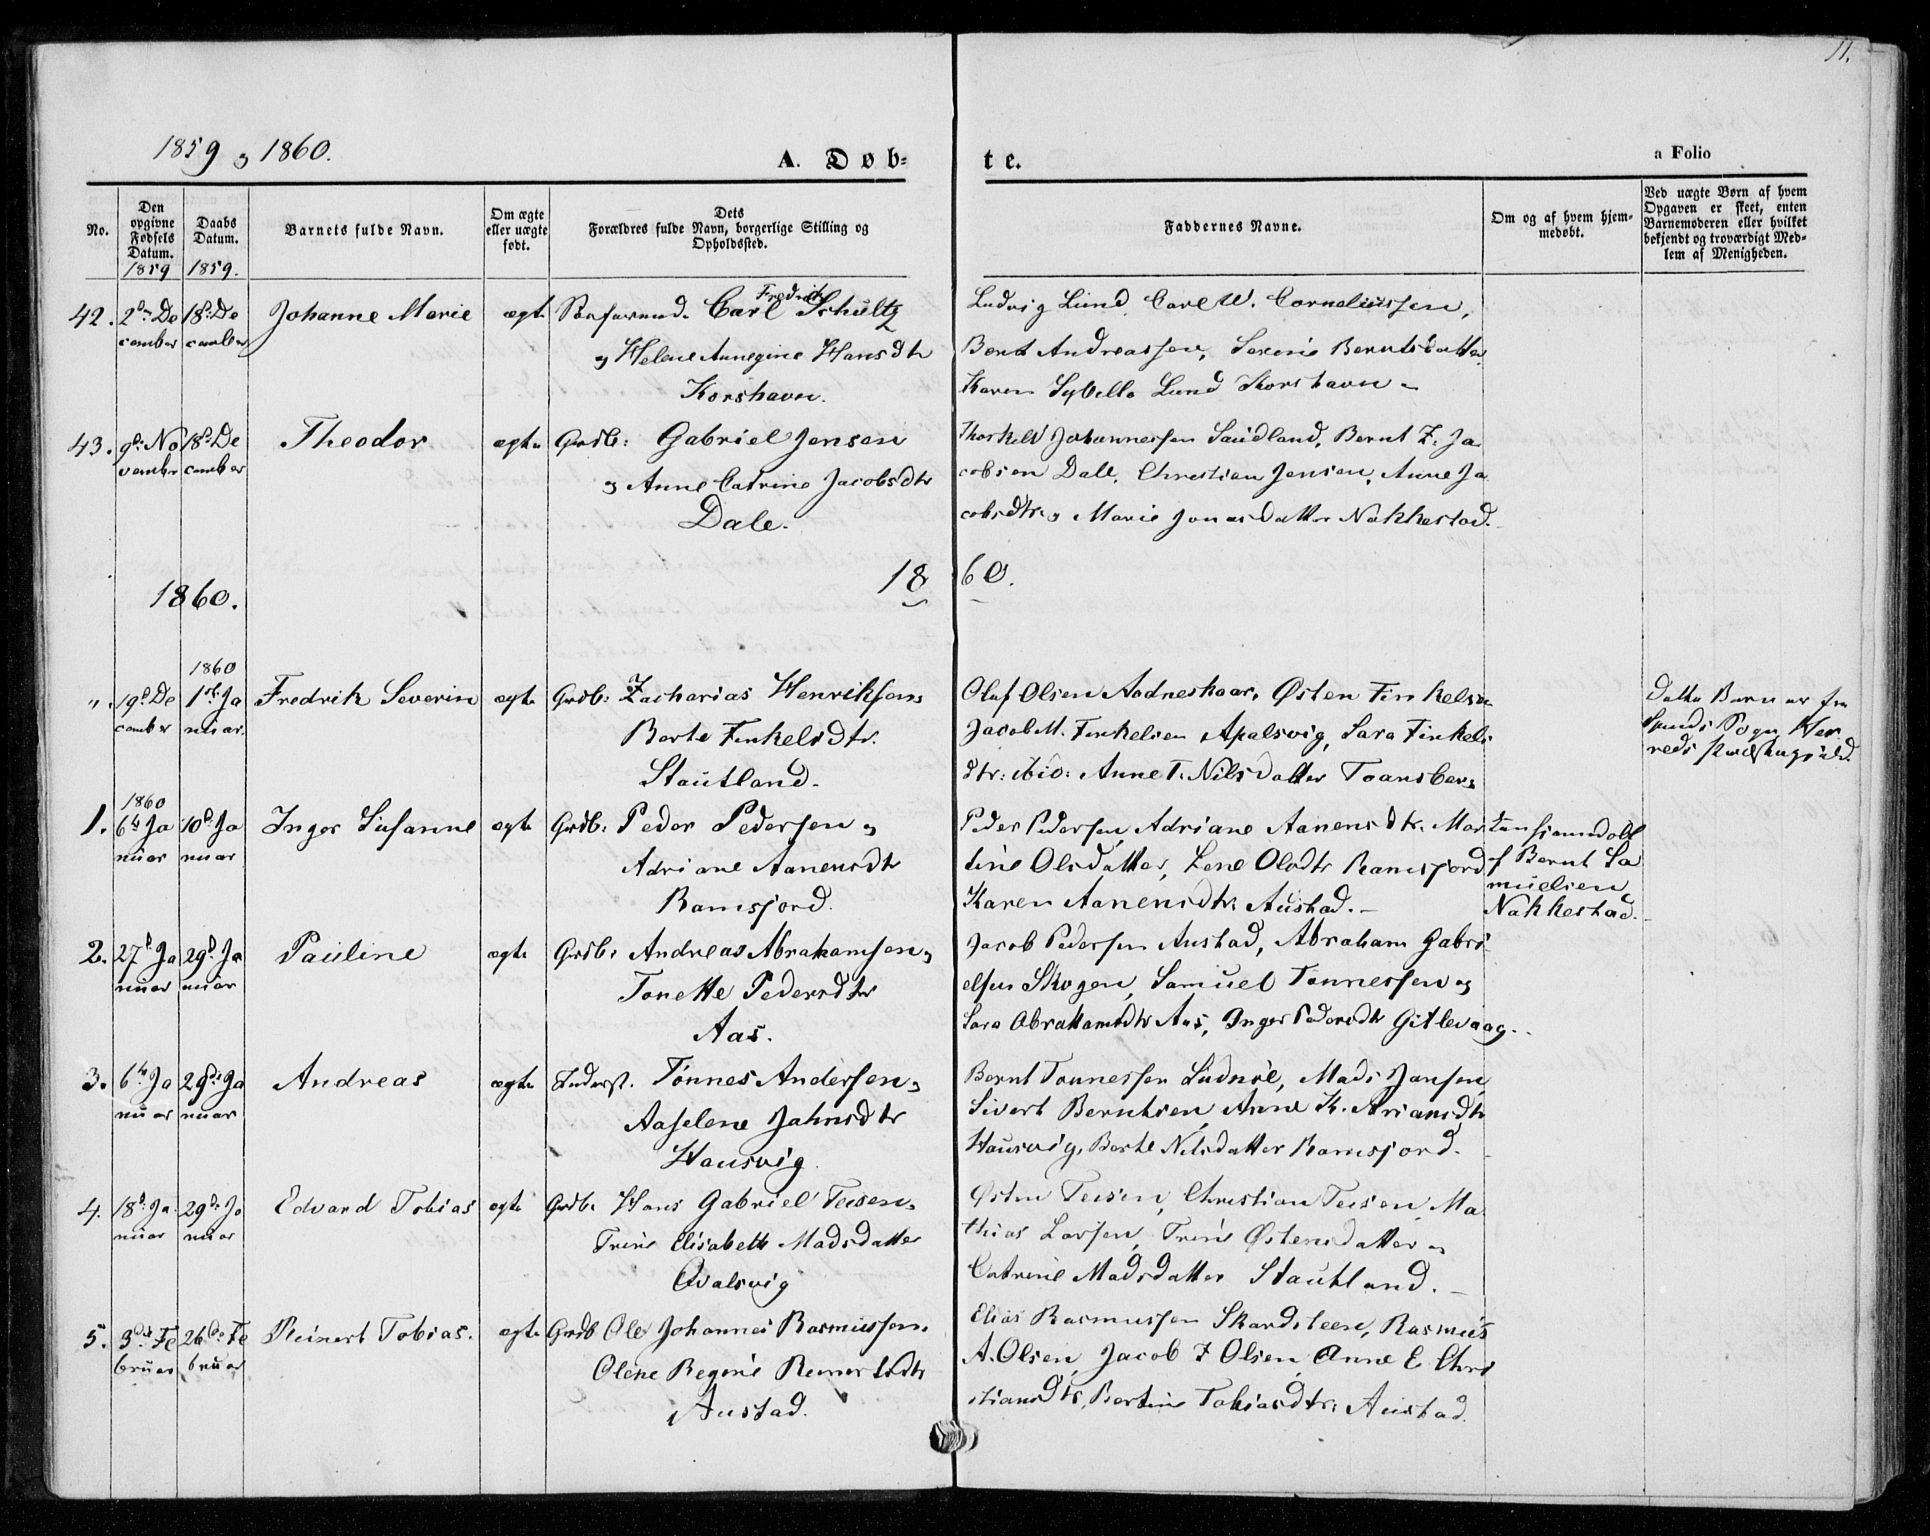 11.
1859 og 1860.
A. Døb-
te.
a Folio
No.
Den opgivne Fødsels Datum.
1859
Daabs Datum.
1859.
Barnets fulde Navn.
Om ægte eller uægte født.
Dets
Forældres fulde Navn, borgerlige Stilling og
Opholdssted.
Faddernes Navne.
Om og af hvem hjem-
medøbt.
Ved uægte Børn af hvem
Opgaven er skeet, enten
Barnemoderen eller hvilket
bekjendt og troværdigt Med-
lem af Menigheden.
42. 2den De 18de De Johanne Marie ægte Carl Fredrik Schültz
cember cember og Helene Annegine Hansdtr
Korshavn.
Ludvig Lund, Carl W. Corneliussen,
Bent Andreassen, Serine Berntsdatter
Karen Sybille Lund Korshavn
43. 9de No 18de De Theodor ægte Grdb: Gabriel Jensen
vember cember og Anne Catrine Jacobsdtr
Dale.
Thorkild Johannessen Saudland, Bernt Z. Ja
cobsen Dale, Christian Jensen, Anne Ja
cobsdtr og Marie Jonasdatter Nakkestad.
1860.
1860.
1860
". 19de De 1ste Ja Fredrik Severin ægte Grdb: Zacharias Henriksen og
cember nuar Berte Tinkelsdtr.
Stautland.
Oluf Olsen Aadneskaar, Østen Tinkelsen
Jacob M. Tinkelsen Apalsvig, Sara Tinkels
dtr: ibid: Anne T. Nilsdatter
Dette Barn er fra
Spinds Sogn Her
reds Præstegjæld.
1860
1. 6te Ja 10de Ja Inger Susanne ægte Grdb: Peder Pedersen og
nuar nuar Adriane Aanensdtr
Ramsjord.
Peder Pedersen, Adriane Aanensdtr. Mar
tine Olsdatter, Lene Olsdtr Ramsjord
Karen Aanensdtr: Austad.
hjemmedøbt
af Bernt Sa
muelsen
Nakkestad.
2. 27de Ja 29de Ja Pauline ægte Grdb: Andreas Abrahamsen og
nuar nuar Tonette Pedersdtr
Aas.
Jacob Pedersen Austad, Abraham Gabri
elsen Skogen, Samuel Tønnessen og
Sara Abrahamsdtr Aas, Inger Pedersdtr Gitlevaag.
3. 6te Ja 29de Ja Andreas ægte Inderst. Tønnes Andersen og
nuar nuar Aaselene Jahnsdtr
Hausvig.
Bernt Tønnessen, Mads Jansen,
Sivert Berntsen, Anne K. Ariansdtr
Hausvig, Berte Nilsdatter Ramsjord.
4. 18de Ja 29de Ja Edvard Tobias ægte Grdb. Hans Gabriel Teisen og
nuar nuar Trine Elisabeth Madsdatter
Qvalsvig
Østen Teisen, Christian Teisen, Ma
thias Larsen, Trine Østensdatter og
Catrine Madsdatter Stautland.
5. 3die Fe 26de Fe Reinert Tobias. ægte Grdb Ole Johannes Rasmussen og
bruar bruar Olene Regine Reinertsdtr
Austad.
Elias Rasmussen Skardsteen, Rasmus
A. Olsen, Jacob T Olsen, Anne E. Chri
stiansdtr, Bertine Tobiasdtr: Austad.